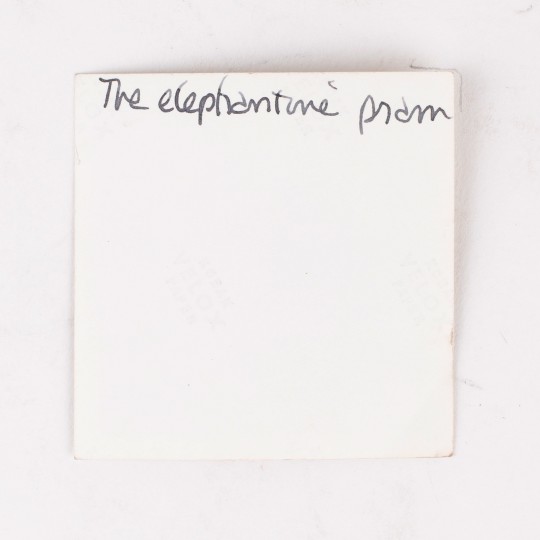 The elephantine pram